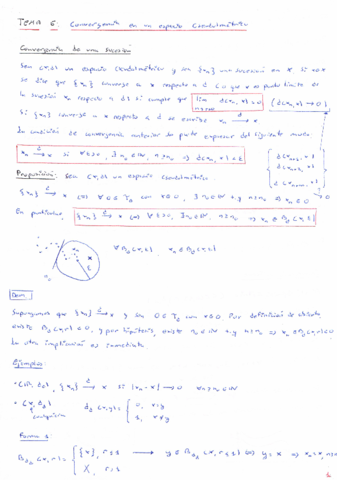 TEMA 6: Convergencia en un espacio Pseudométrico
Convergencia de una sucesión
Sea (X,d) un espacio pseudométrico y sea {xₙ} una sucesión en X si x∈X
se dice que {xₙ} converge a x respecto a d (o que x es punto límite de
la sucesión xₙ respecto a d) si cumple que lim d(xₙ,x)=0 (d(xₙ,x)→0)
n→∞
Si {xₙ} converge a x respecto a d se escribe xₙ →ᵈ x
La condición de convergencia anterior se puede expresar del siguiente modo:
xₙ →ᵈ x si ∀ε>0, ∃n₀∈ℕ, n≥n₀ ⇒ d(xₙ,x)<ε
Proposición: Sea (X,d) un espacio pseudométrico.
{xₙ} →ᵈ x (⇔) ∀θ∈T_d con x∈θ, ∃n₀∈ℕ t.q. n≥n₀ ⇒ xₙ∈θ
En particular, {xₙ} →ᵈ x (⇔) ∀ε>0, ∃n₀∈ℕ, n≥n₀ ⇒ xₙ∈B_d(x,ε)
∀B_d(x,ε) xₙ∈B_d(x,ε)
Dem:
Supongamos que {xₙ} →ᵈ x y sea θ∈T_d con x∈θ. Por definición de abierto,
existe B_d(x,r)⊂θ, y por hipótesis, existe n₀∈ℕ t.q. n≥n₀ ⇒ xₙ∈B_d(x,r)⊂θ
La otra implicación es inmediata.
Ejemplos:
{xₙ} →ᵈ x si |xₙ-x|→0
cualquiera
Forma 1
6